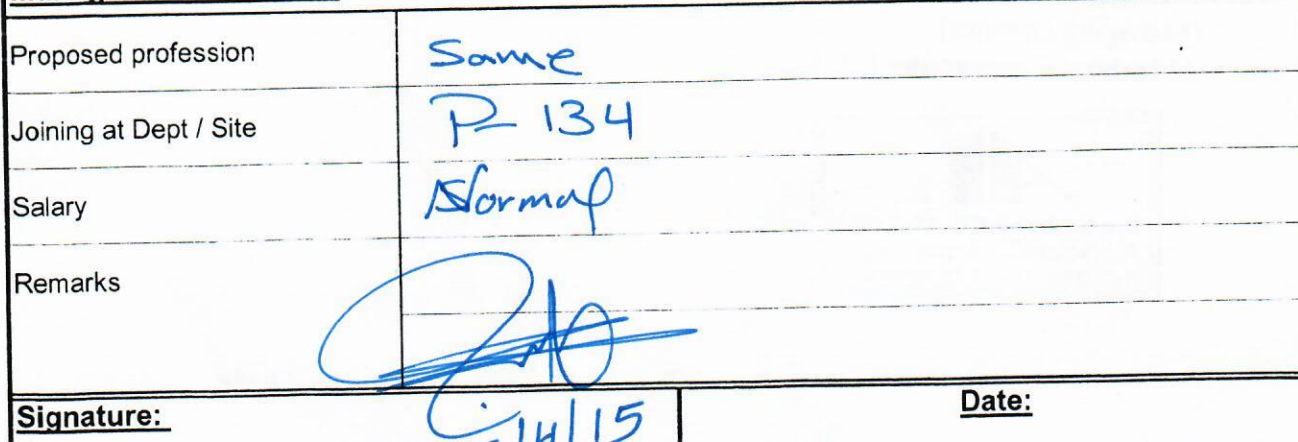 Proposed profession Same
Joining at Dept / Site P-134
Salary Normal
Remarks
Signature: Date:
14/15